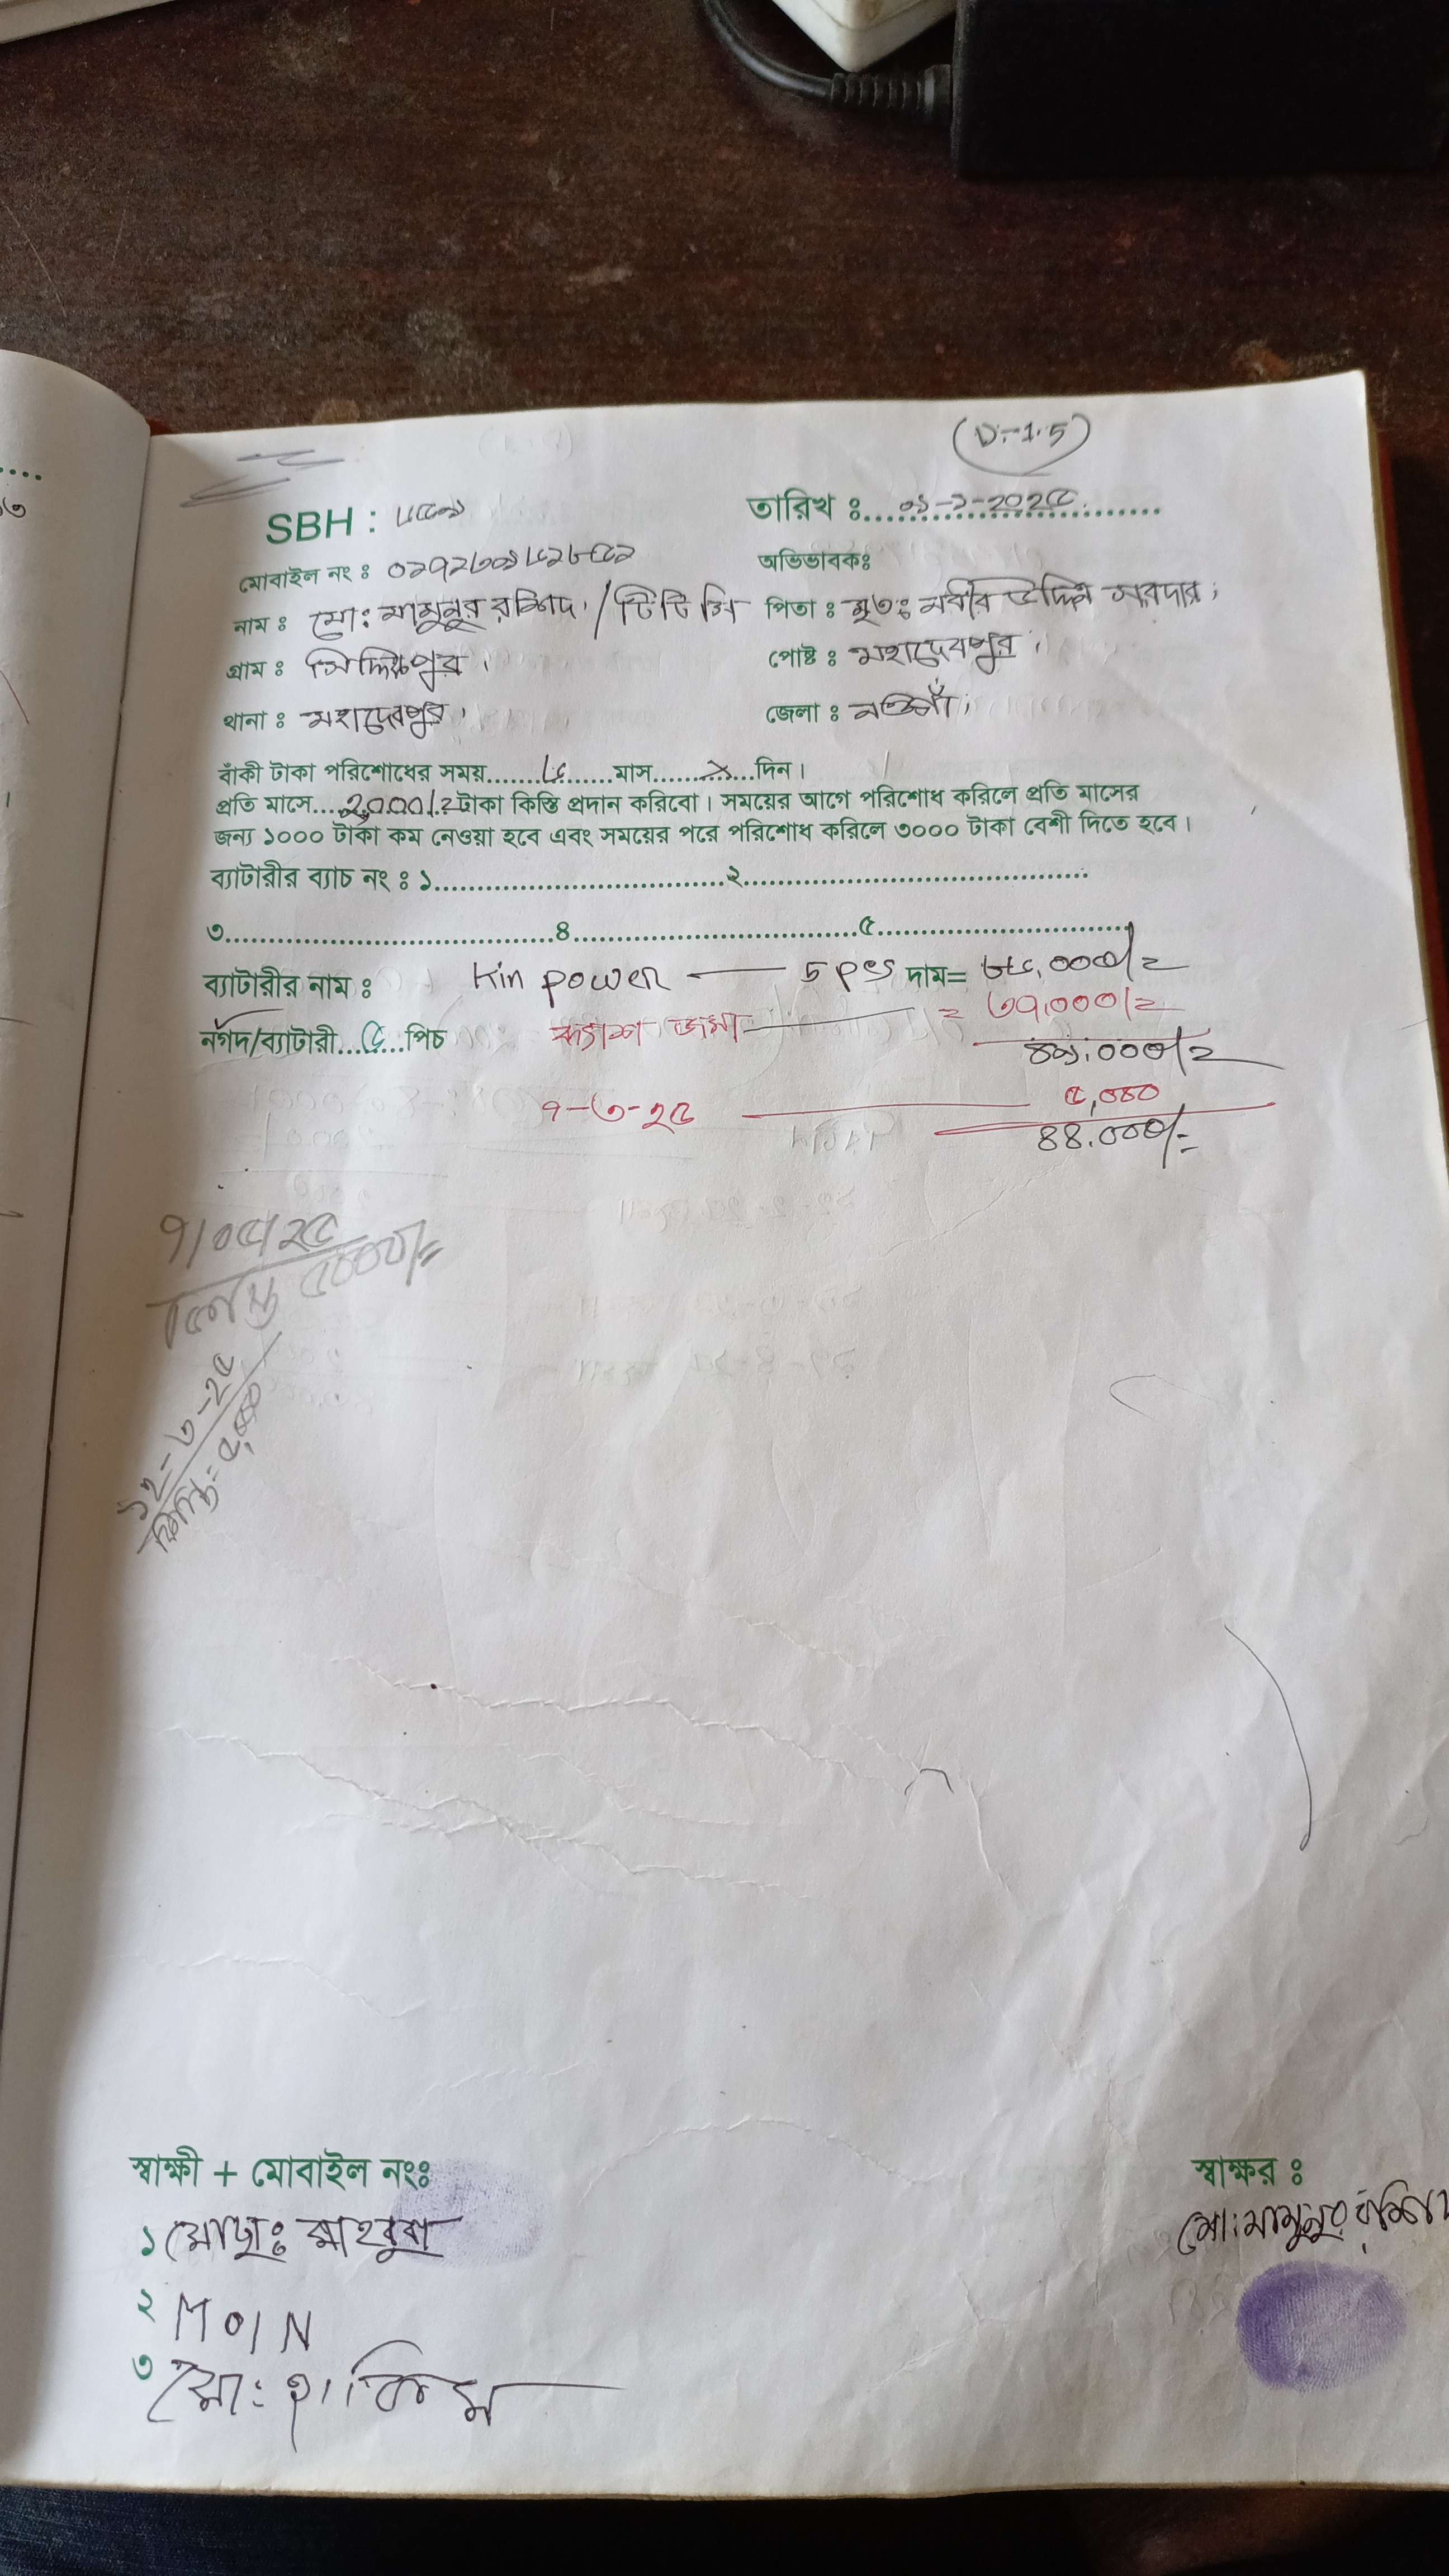 (D:-1.5)
SBH : ৬৫০৯
তারিখ ঃ.... ০৯-১-202৫
মোবাইল নং ঃ
অভিভাবকঃ
নাম ঃ মো: মামুনুর রশিদ / টিটি সি
পিতা ঃ মৃতঃ মবীর উদ্দিন সরদার,
গ্রাম ঃ সিদ্দিকপুর।
পোষ্ট ঃ মহাদেবপুর।
থানা ঃ মহাদেবপুর,
জেলা ঃ নওগাঁ,
বাঁকী টাকা পরিশোধের সময়.......৬.......মাস.......x....দিন।
প্রতি মাসে....2000/=টাকা কিস্তি প্রদান করিবো। সময়ের আগে পরিশোধ করিলে প্রতি মাসের
জন্য ১০০০ টাকা কম নেওয়া হবে এবং সময়ের পরে পরিশোধ করিলে ৩০০০ টাকা বেশী দিতে হবে।
ব্যাটারীর ব্যাচ নং ঃ ১..................................২........................................
৩......................................৪...................................৫..............................
ব্যাটারীর নাম ঃ Kin power — 5 pcs দাম= ৮৬,০০০/=
নগদ/ব্যাটারী...৫...পিচ ক্যাশ জমা — = ৩৭,০০০/=
৪৯,০০০/=
৭-৩-২৫ — ৫,০০০
৪৪,০০০/=
৭/০৫/২৫
৫০০০/=
১২-৩-২৫
কিস্তি= ৫,০০০
স্বাক্ষী + মোবাইল নংঃ
স্বাক্ষর ঃ
১ মোছাঃ মাহবুবা
মো: মামুনুর রশিদ
২ MOIN
৩ মো: হাকিম